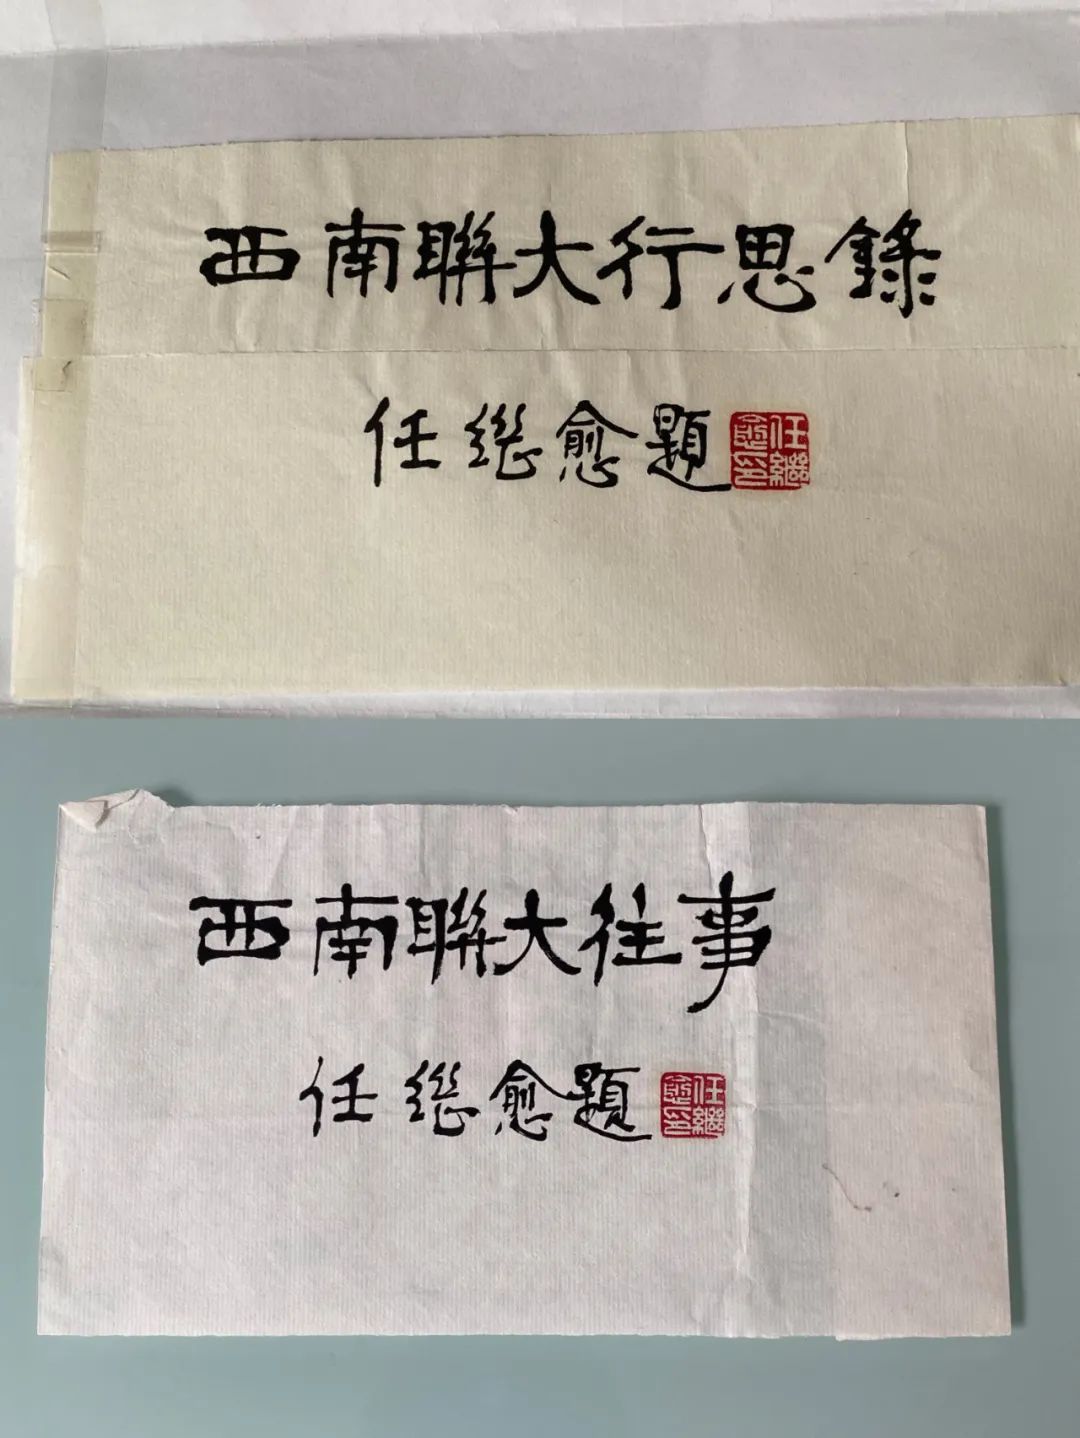 西南聯大行思錄
任继愈題
任繼愈印
西南聯大往事
任继愈題
任繼愈印